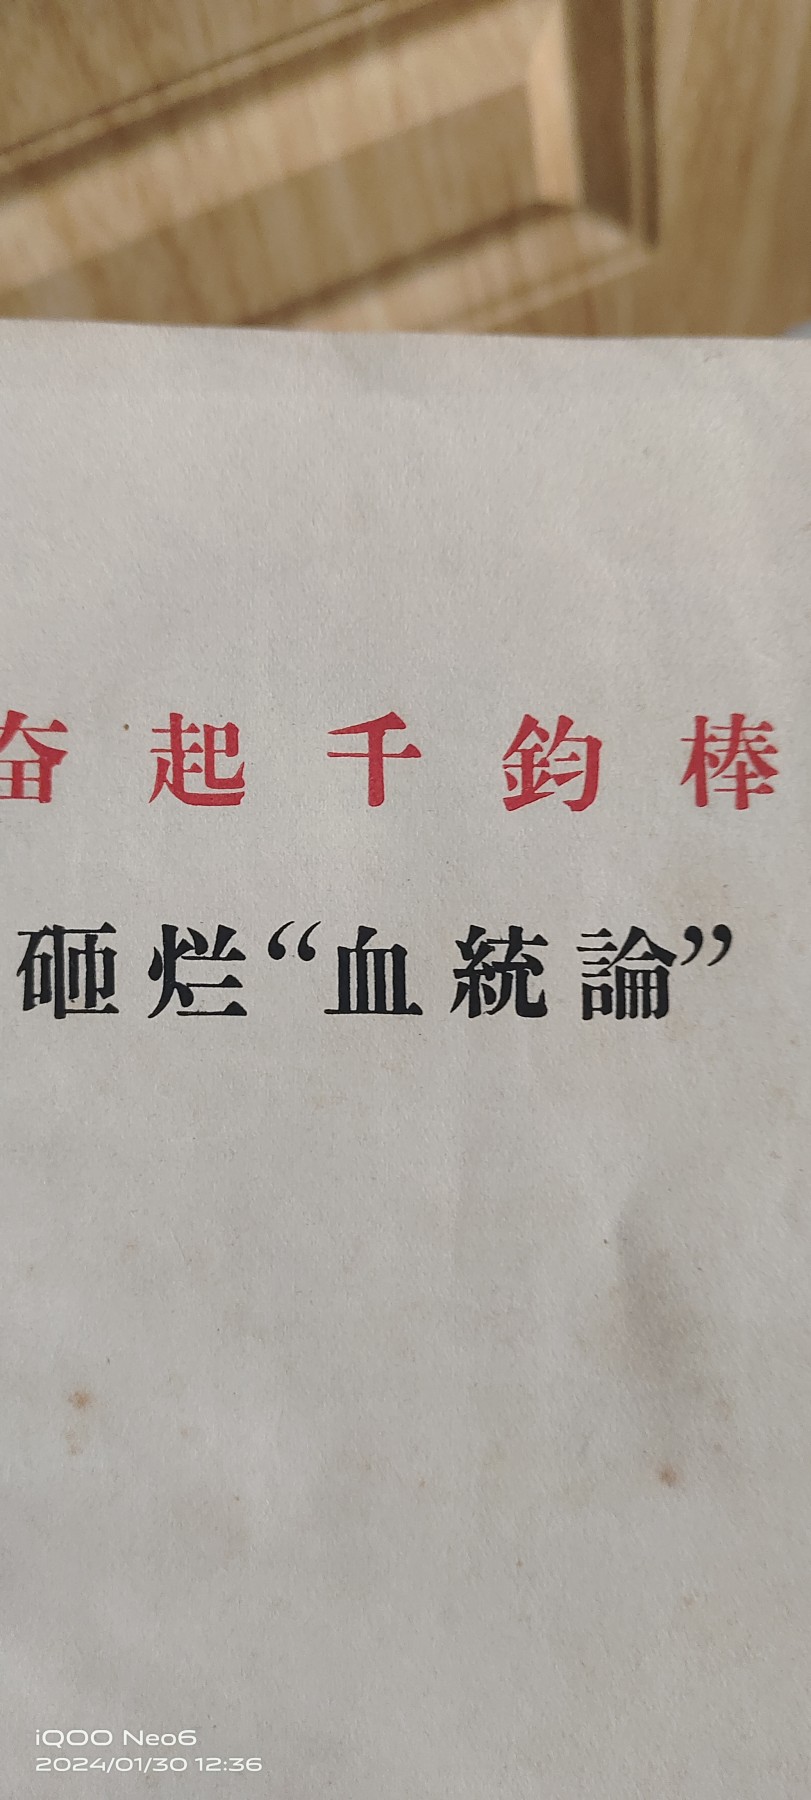 奋起千鈞棒
砸烂“血統論”
iQOO Neo6
2024/01/30 12:36